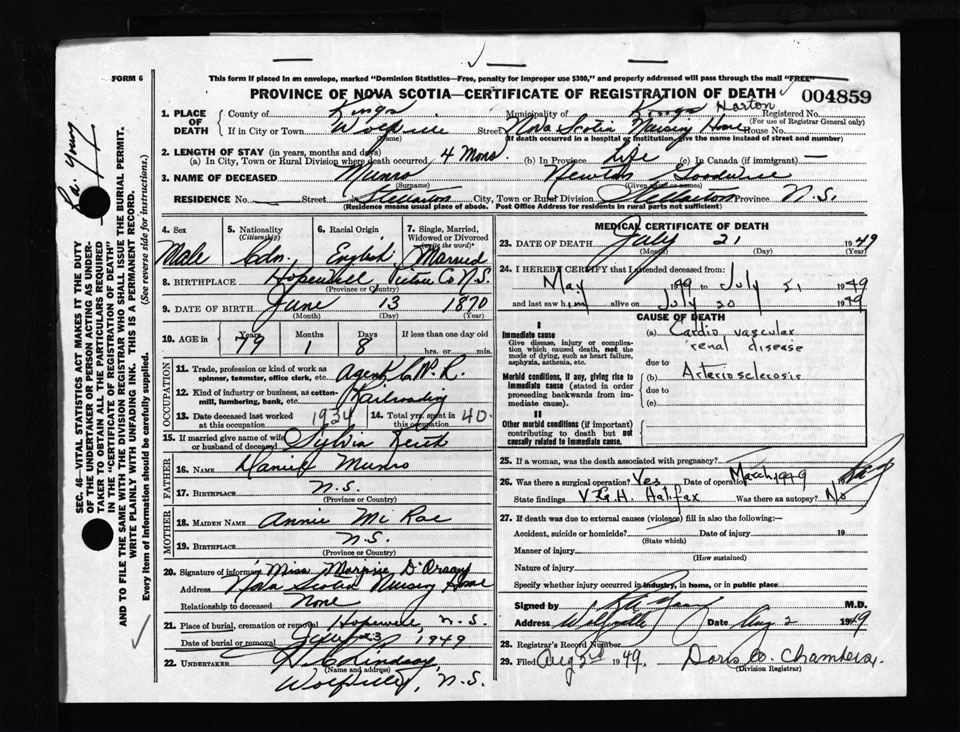 FORM 6
This form if placed in an envelope, marked "Dominion Statistics—Free, penalty for improper use $300," and properly addressed will pass through the mail "FREE"
PROVINCE OF NOVA SCOTIA—CERTIFICATE OF REGISTRATION OF DEATH
004859
1. PLACE OF DEATH
County of Kings
Municipality of Kings Horton Registered No.
(For use of Registrar General only)
If in City or Town Wolfville Street Nova Scotia Nursing Home House No.
(Name) (If death occurred in a hospital or institution, give the name instead of street and number)
2. LENGTH OF STAY (in years, months and days)
(a) In City, Town or Rural Division where death occurred 4 Mons. (b) In Province Life (c) In Canada (if immigrant) —
3. NAME OF DECEASED Munro Newton
(Surname) (Given name or names)
RESIDENCE No. Street Stellarton City, Town or Rural Division Stellarton Province N.S.
(Residence means usual place of abode. Post Office Address for residents in rural parts not sufficient)
4. Sex
Male
5. Nationality (Citizenship)
Cdn.
6. Racial Origin
English
7. Single, Married, Widowed or Divorced (write the word)
Married
8. BIRTHPLACE Hopewell Pictou Co N.S.
(Province or Country)
9. DATE OF BIRTH June 13 1870
(Month) (Day) (Year)
10. AGE in Years Months Days If less than one day old
79 1 8 hrs. or min.
OCCUPATION
11. Trade, profession or kind of work as spinner, teamster, office clerk, etc. Agent C.N.R.
12. Kind of industry or business, as cotton-mill, lumbering, bank, etc. Railroading
13. Date deceased last worked at this occupation 1934
14. Total yrs. spent in this occupation 40
15. If married give name of wife or husband of deceased Sylvia Keith
FATHER
16. NAME Daniel Munro
17. BIRTHPLACE N.S.
(Province or Country)
MOTHER
18. MAIDEN NAME Annie McRae
19. BIRTHPLACE N.S.
(Province or Country)
20. Signature of informant Miss Marjorie D'Orsay
Address Nova Scotia Nursing Home
Relationship to deceased None
21. Place of burial, cremation or removal Hopewell, N.S.
Date of burial or removal July 23, 1949
22. UNDERTAKER Lindsay
(Name and address)
Wolfville, N.S.
MEDICAL CERTIFICATE OF DEATH
23. DATE OF DEATH July 21 1949
(Month) (Day) (Year)
24. I HEREBY CERTIFY that I attended deceased from:
May 1949 to July 21 1949
and last saw him alive on July 20 1949
CAUSE OF DEATH
I
Immediate cause
Give disease, injury or complication which caused death, not the mode of dying, such as heart failure, asphyxia, asthenia, etc.
(a) Cardio vascular renal disease
due to
Morbid conditions, if any, giving rise to immediate cause (stated in order proceeding backwards from immediate cause).
(b) Arteriosclerosis
due to
(c)
II
Other morbid conditions (if important) contributing to death but not causally related to immediate cause.
25. If a woman, was the death associated with pregnancy?
26. Was there a surgical operation? Yes Date of operation March 1949
State findings V.G.H. Halifax Was there an autopsy? No
27. If death was due to external causes (violence) fill in also the following:—
Accident, suicide or homicide? Date of injury 19
(State which)
Manner of injury
(How sustained)
Nature of injury
Specify whether injury occurred in industry, in home, or in public place
Signed by M.D.
Address Wolfville Date Aug 2 1949
28. Registrar's Record Number
29. Filed Aug 2nd 1949. Doris W. Chambers.
(Division Registrar)
SEC. 46—VITAL STATISTICS ACT MAKES IT THE DUTY
OF THE UNDERTAKER OR PERSON ACTING AS UNDER-
TAKER TO OBTAIN ALL THE PARTICULARS REQUIRED
IN THE "CERTIFICATE OF REGISTRATION OF DEATH"
AND TO FILE THE SAME WITH THE DIVISION REGISTRAR WHO SHALL ISSUE THE BURIAL PERMIT.
WRITE PLAINLY WITH UNFADING INK. THIS IS A PERMANENT RECORD.
Every item of Information should be carefully supplied. (See reverse side for instructions.)